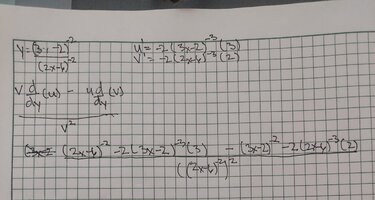 y = (3x-2)^-2 / (2x-4)^-2
u' = -2(3x-2)^-3 (3)
v' = -2(2x-4)^-3 (2)
v d/dy (u) - u d/dy (v) / v^2
(2x-4)^-2 -2(3x-2)^-3 (3) - (3x-2)^-2 -2(2x-4)^-3 (2) / ((2x-4)^-2)^2